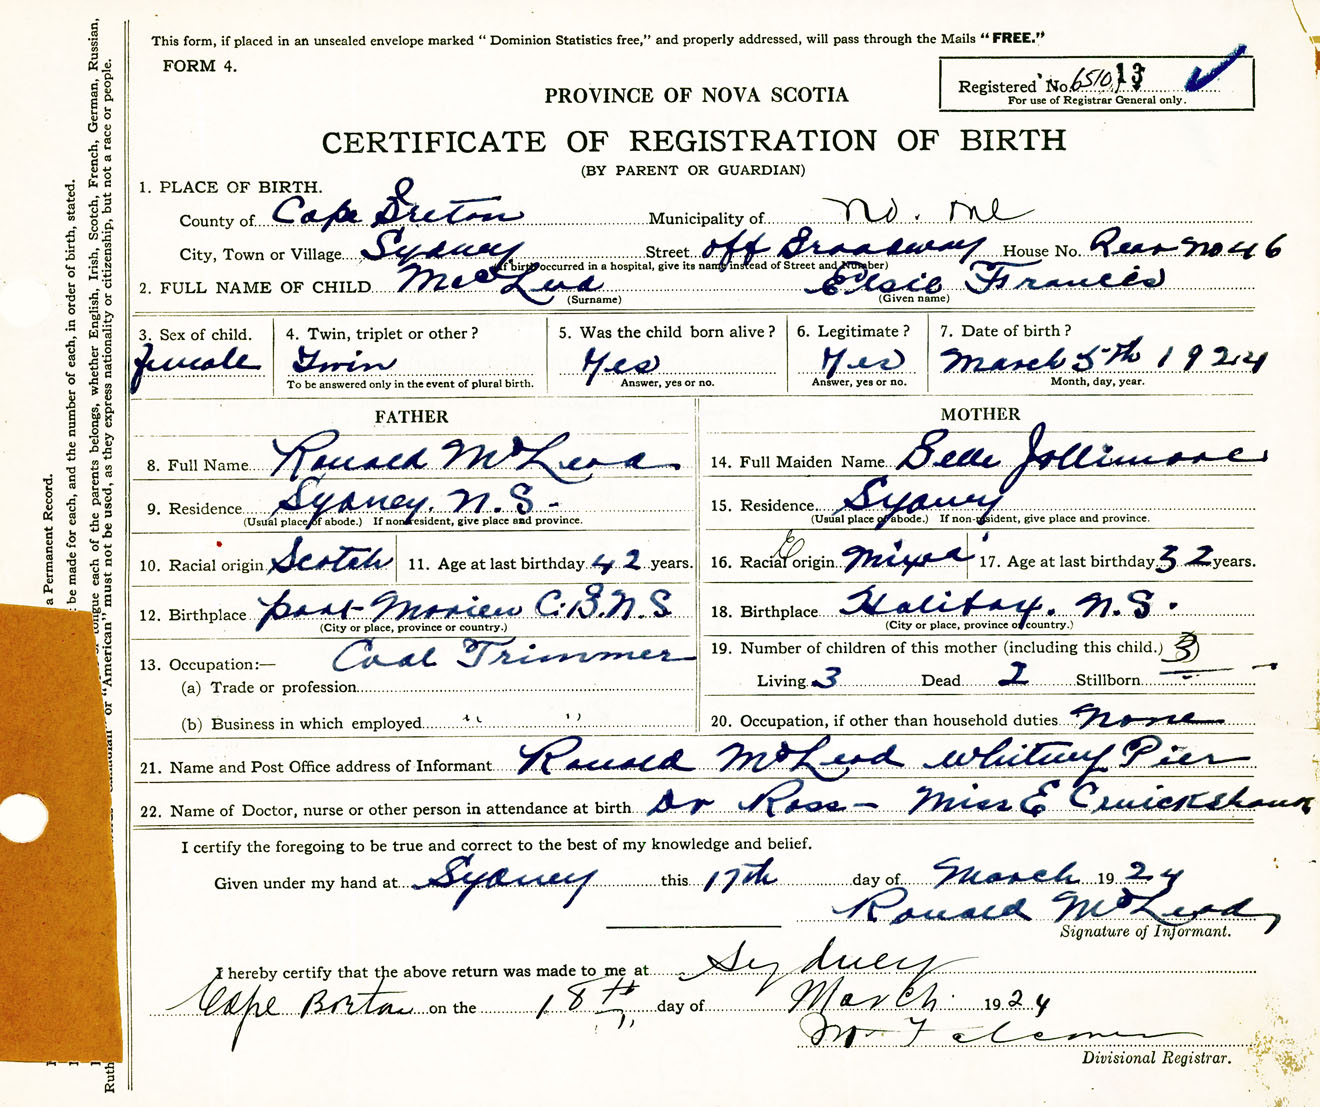 This form, if placed in an unsealed envelope marked " Dominion Statistics free," and properly addressed, will pass through the Mails "FREE."
FORM 4.
Registered No. 6510 13
For use of Registrar General only.
PROVINCE OF NOVA SCOTIA
CERTIFICATE OF REGISTRATION OF BIRTH
(BY PARENT OR GUARDIAN)
1. PLACE OF BIRTH.
County of Cape Breton Municipality of
City, Town or Village Sydney Street off Broadway House No. Rear No 46
(If birth occurred in a hospital, give its name instead of Street and Number)
2. FULL NAME OF CHILD McLeod Elsie Francis
(Surname) (Given name)
3. Sex of child. 4. Twin, triplet or other? 5. Was the child born alive? 6. Legitimate? 7. Date of birth?
female Twin Yes Yes March 5th 1924
To be answered only in the event of plural birth. Answer, yes or no. Answer, yes or no. Month, day, year.
FATHER
8. Full Name Ronald McLeod
9. Residence Sydney. N.S-
(Usual place of abode.) If non-resident, give place and province.
10. Racial origin Scotch 11. Age at last birthday 42 years.
12. Birthplace port-Morien C.B.N.S
(City or place, province or country.)
13. Occupation:— Coal Trimmer
(a) Trade or profession
(b) Business in which employed " "
MOTHER
14. Full Maiden Name Belle Jollimore
15. Residence Sydney
(Usual place of abode.) If non-resident, give place and province.
16. Racial origin Mixd 17. Age at last birthday 32 years.
18. Birthplace Halifax. N.S.
(City or place, province or country.)
19. Number of children of this mother (including this child.) 3
Living 3 Dead 2 Stillborn -
20. Occupation, if other than household duties none
21. Name and Post Office address of Informant Ronald McLeod Whitney Pier
22. Name of Doctor, nurse or other person in attendance at birth Dr Ross — Miss E Cruickshank
I certify the foregoing to be true and correct to the best of my knowledge and belief.
Given under my hand at Sydney this 17th day of March 1924
Ronald McLeod
Signature of Informant.
I hereby certify that the above return was made to me at Sydney
Cape Breton on the 18th day of March 1924
Divisional Registrar.
a Permanent Record.
be made for each, and the number of each, in order of birth, stated.
tongue each of the parents belongs, whether English, Irish, Scotch, French, German, Russian,
or "American" must not be used, as they express nationality or citizenship, but not a race or people.
Ruth